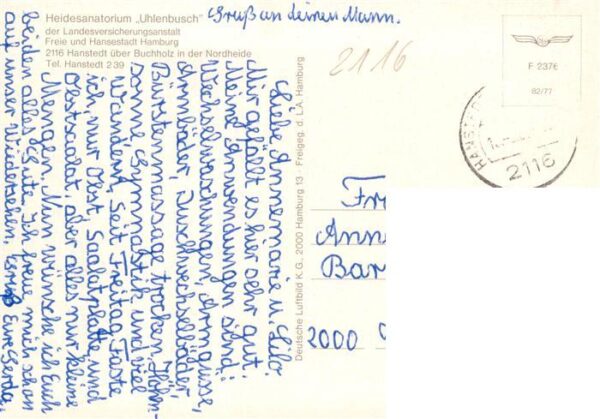 Heidesanatorium „Uhlenbusch"
der Landesversicherungsanstalt
Freie und Hansestadt Hamburg
2116 Hanstedt über Buchholz in der Nordheide
Tel. Hanstedt 2 39
Gruß an deinen Mann.
2116
F 2376
82/77
HANSTED
2116
Deutsche Luftbild K.G., 2000 Hamburg 13 · Freigeg. d. L.A. Hamburg
Liebe Annemarie u. Lilo.
Mir gefällt es hier sehr gut.
Meine Anwendungen sind:
Wechselwaschungen, Armgüsse,
Armbäder, Fußwechselbäder
Bürstenmassage trocken, Höhen-
sonne Gymnastik und viel
Wandern. Seit Freitag Faste
ich, nur Obst, Saalatplatte, und
Obstsaalat, aber alles nur kleine
Mengen. Nun wünsche ich Euch
beiden alles Gute. Ich freue mich schon
auf unser Wiedersehen, Gruß Eure Gerda.
Fr
Ann
Bar
2000